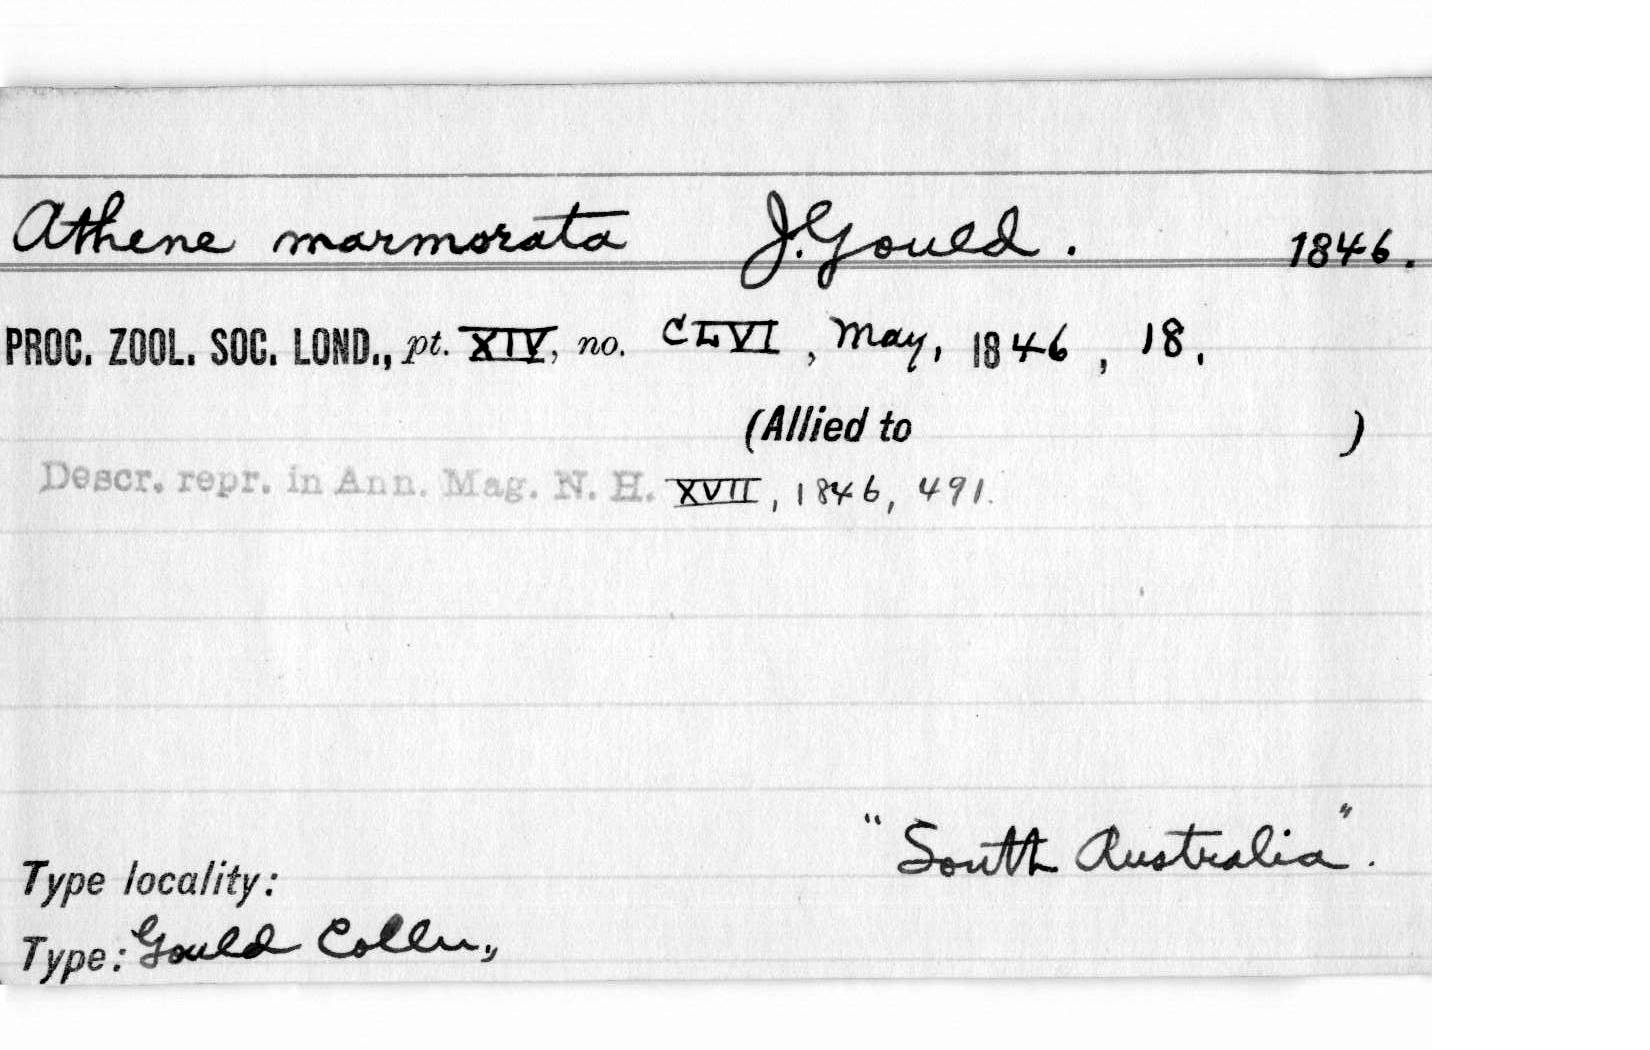 Athene marmorata J. Gould. 1846.
PROC. ZOOL. SOC. LOND., pt. XIV, no. CLVI, May, 1846, 18.
(Allied to )
Descr. repr. in Ann. Mag. N. H. XVII, 1846, 491.
"South Australia".
Type locality:
Type: Gould Colln.,